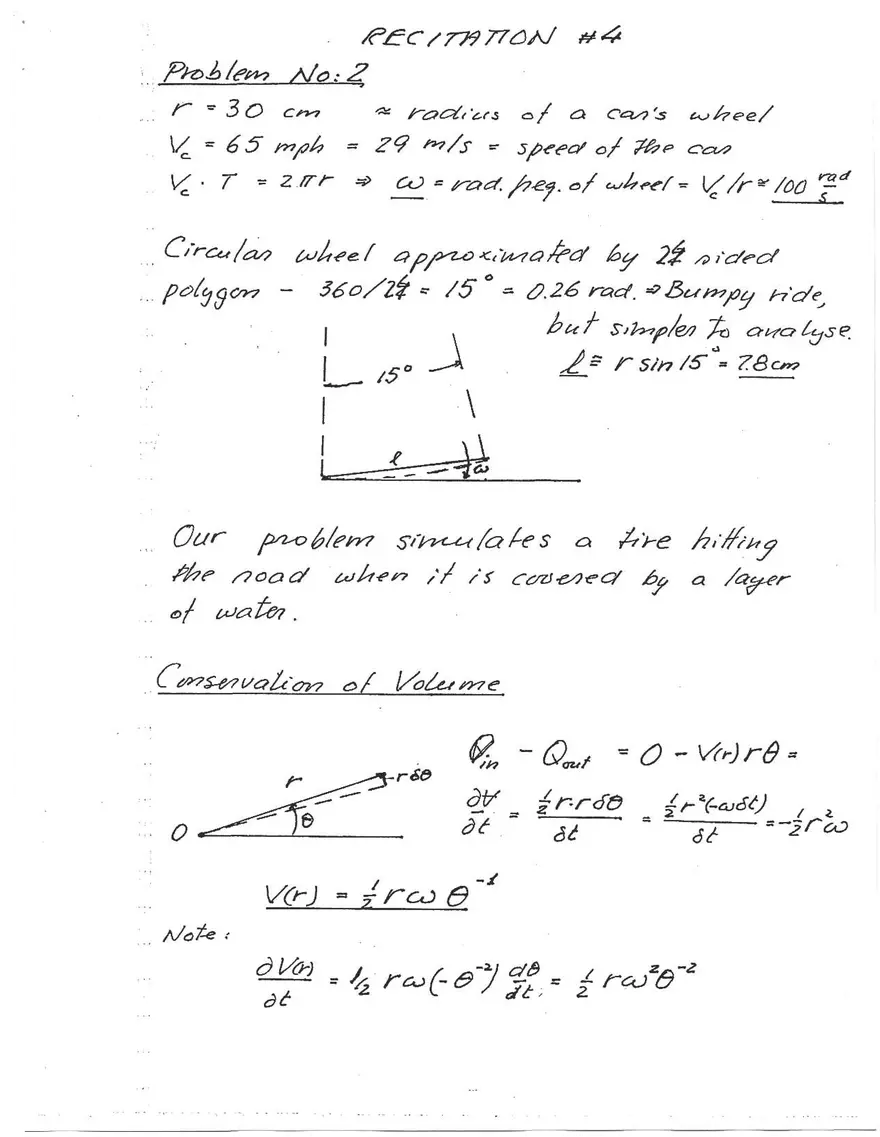 RECITATION #4
Problem No: 2
r = 30 cm ≈ radius of a car's wheel
V_c = 65 mph = 29 m/s = speed of the car
V_c · T = 2πr ⇒ ω = rad. freq. of wheel = V_c/r ≃ 100 rad/s
Circular wheel approximated by 24 sided
polygon - 360/24 = 15° = 0.26 rad. ⇒ Bumpy ride,
but simpler to analyse.
l ≅ r sin 15° = 7.8 cm
15°
l
ω
Our problem simulates a tire hitting
the road when it is covered by a layer
of water.
Conservation of Volume
Q_in - Q_out = 0 - V(r) r θ =
r
rδθ
θ
O
∂V/∂t = ½ r·r δθ / δt = ½ r²(-ωδt) / δt = -½ r²ω
V(r) = ½ r ω θ⁻¹
Note:
∂V(r)/∂t = 1/2 r ω (-θ⁻²) dθ/dt = ½ r ω² θ⁻²